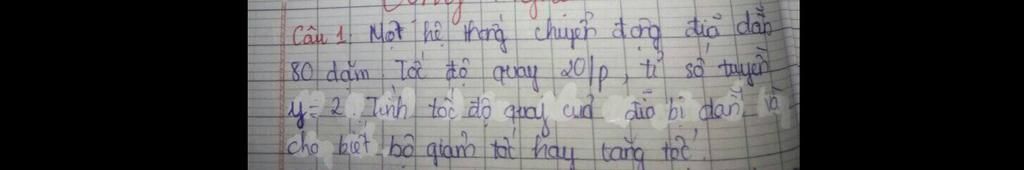 Câu 1 Một hệ thống chuyển động đĩa dẫn
80 dặm Tốc độ quay 20/p, tỉ số tuyền
y = 2. Tính tốc độ quay cuả đĩa bị dẫn và
cho biết bộ giảm tốc hay tăng tốc.